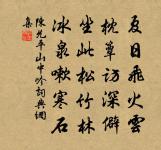 夏日飛火雲
枕簟訪深僻
坐此松竹林
冰泉嗽寒石
陳允平山中吟詞典網
集